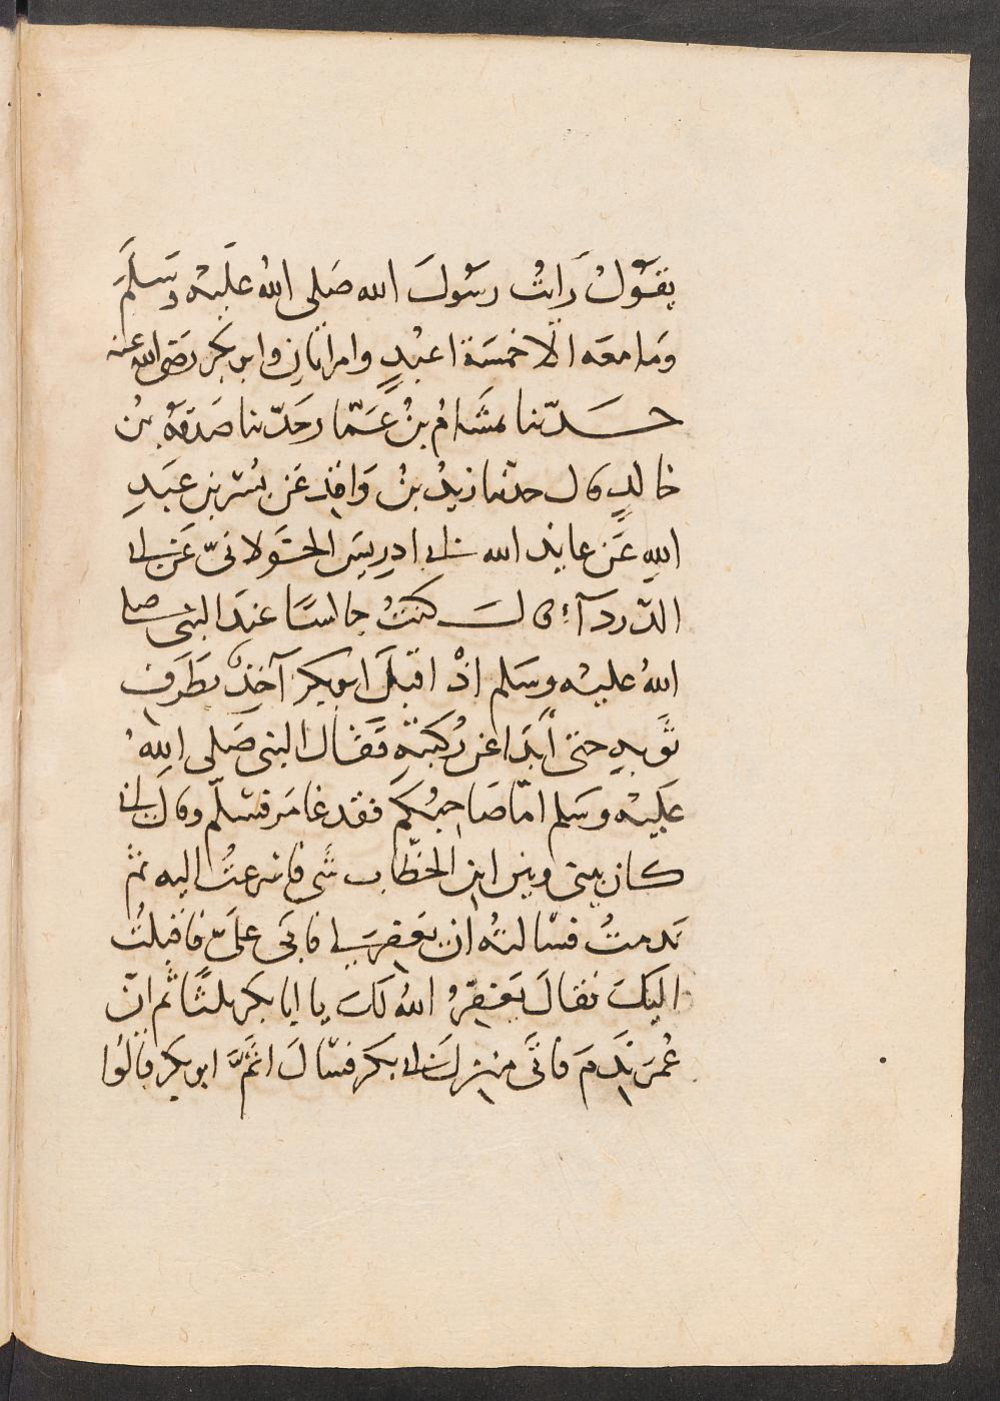 يقولُ رَايتُ رسُولَ الله صَلى اللهُ علَيْه وسَلَّمَ
وَمَا معَه الَّا خمسَة اعبُدٍ وامراتانِ وابو بكر رضى الله عنه
حدّثنا هشَامُ بنُ عَمّار حَدّثنا صَدَقةُ بنُ
خالدٍ قال حدثنا زيدُ بنُ وَاقِدٍ عَن بُسْر بن عبَيدِ
اللهِ عَن عايذ الله ابى ادرِيسَ الخَولانىّ عَن ابى
الدّردآءِ قالَ كنتُ جالسًا عندَ النبى صلى
اللهُ عليْه وسَلم اذْ اقبَلَ ابو بكر آخِذًا بطَرَفِ
ثَوبهِ حتى اَبدَا عن رُكبَتِه فقَال النبى صَلى اللهُ
عَليْه وسَلم امّا صَاحِبُكم فقد غامَر فسَلّم وقالَ انى
كان بينى وبين ابن الخطّاب شَىء فاسْرعتُ اليه ثمّ
نَدمتُ فسَالتُه ان يَغفِرَ لى فابَى علَىّ فاقبلتُ
اليكَ فقالَ يَغفِرُ اللهُ لكَ يا ابا بكر ثلثًا ثم انّ
عُمرَ نَدِمَ فاتَى منزِلَ ابى بكر فسَالَ اثَمَّ ابو بكر قالُوا